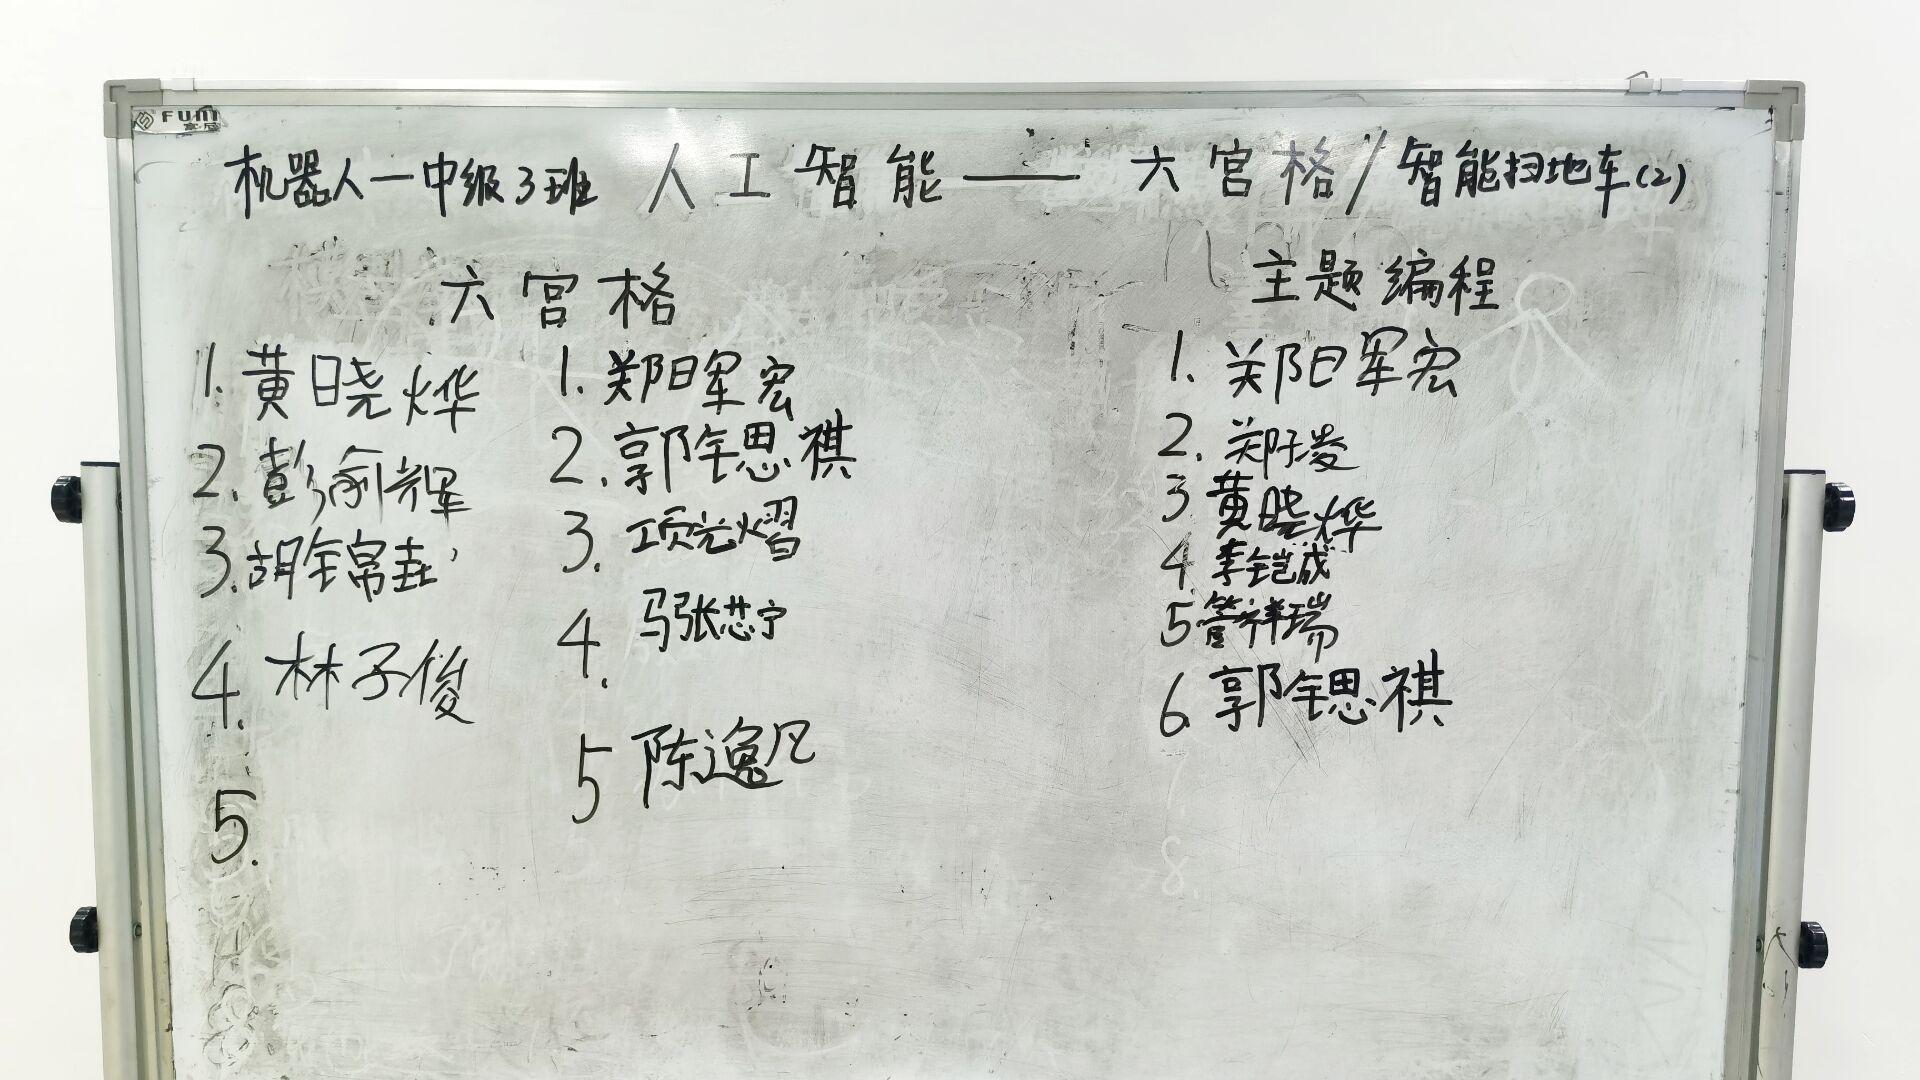 FUNI
富尼
机器人一中级3班 人工智能——六宫格/智能扫地车(2)
六宫格
1. 黄晓烨
2. 彭俞辉
3. 胡锦垚
4. 林子俊
5.
1. 郑晖宏
2. 郭锶祺
3. 项光熠
4. 马张芯宁
5 陈逸凡
主题编程
1. 郑晖宏
2. 郑子凌
3 黄晓烨
4 李铠成
5 管祥瑞
6. 郭锶祺
8.